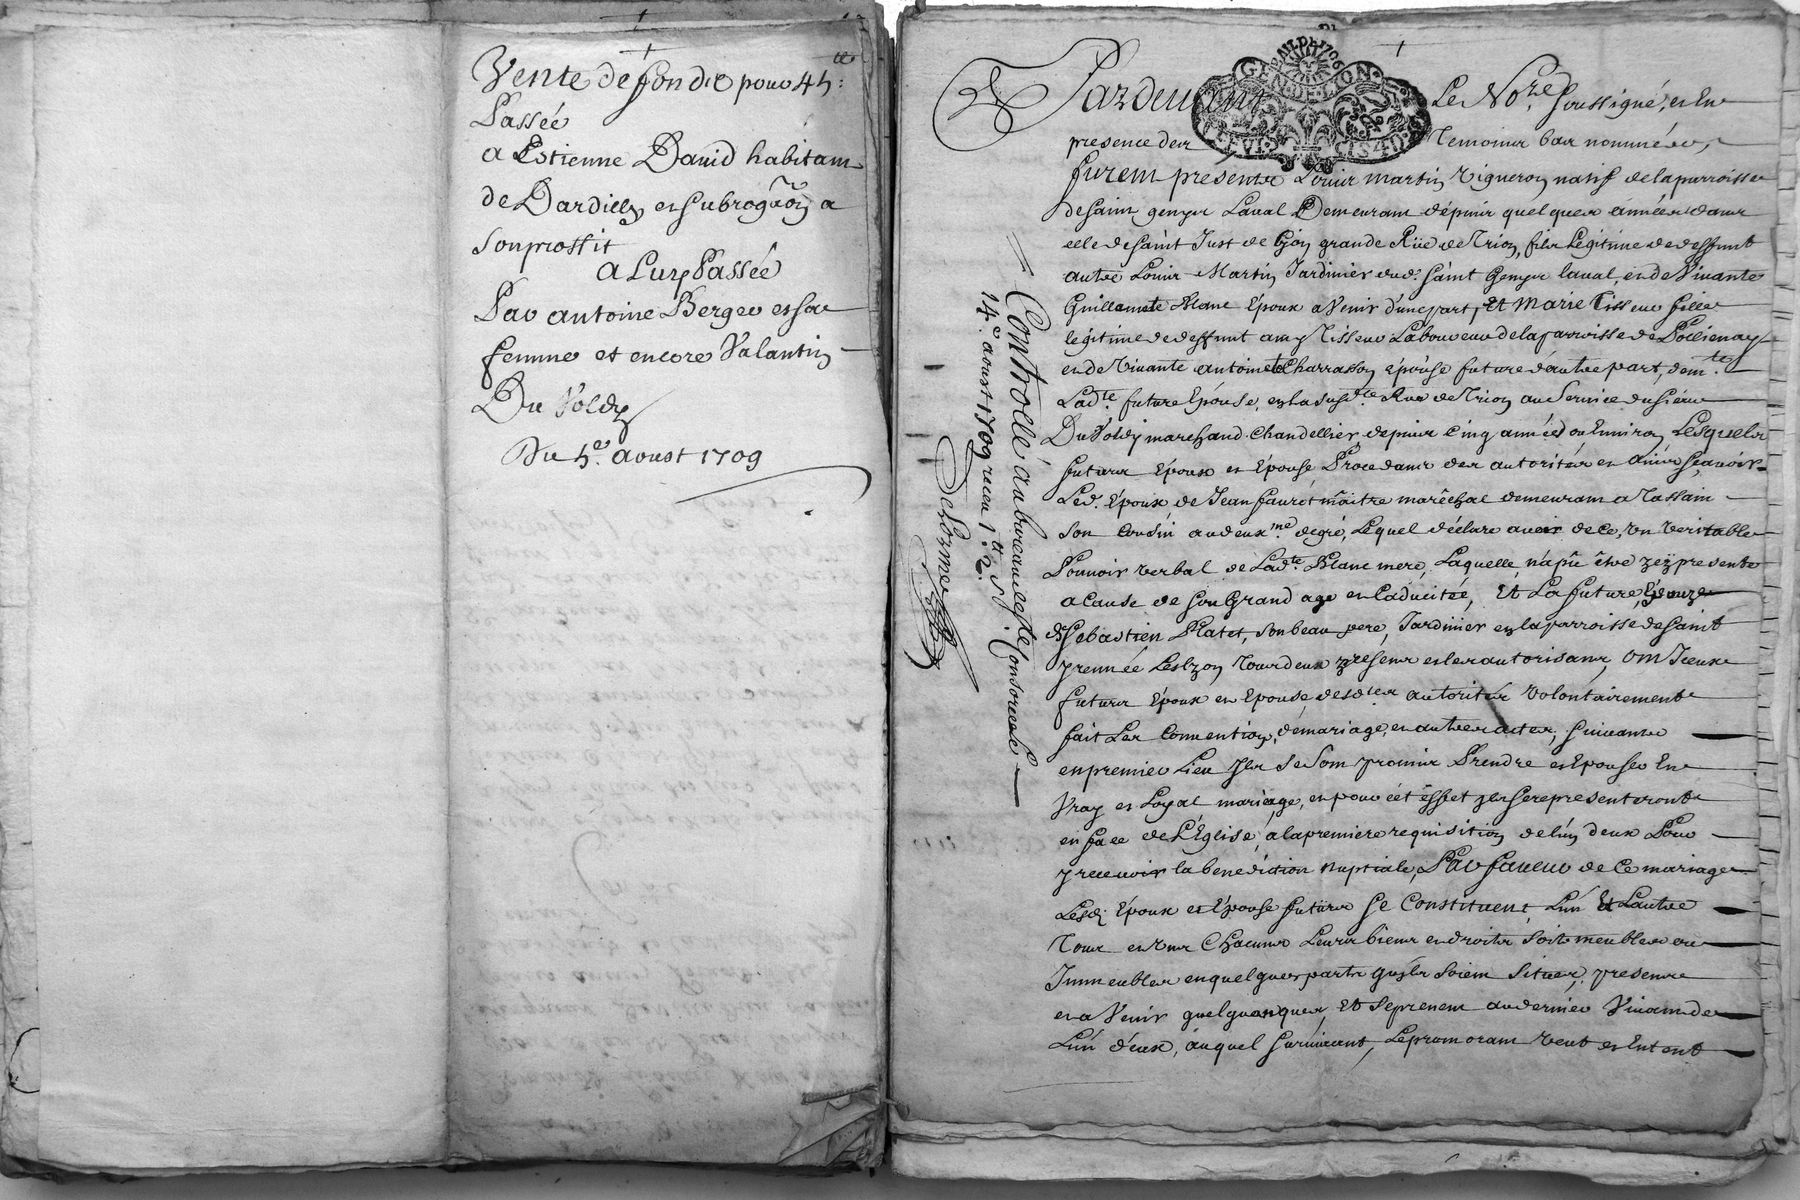 Vente de fond &c pour 45:
Passée
a Estienne Dauid habitam
de Dardilly et subrogãõn a
son proffit
a Luy Passée
Par antoine Berger et sa
femme et encore Valantin
Du Soldy
Du 5e. aoust 1709
Pardeuant Le Nore. soussigné, et En
presence des Temoins bas nommées,
furem présents Louis martin Vigneron natif de la parroisse
de saint genys Laual Demeuram dépuis quelques années dans
celle de saint Just de Lyon grande Rüe de Trion, fils Légitime de deffunt
autre Louis Martin Jardinier dud. saint Genys laual, et de Viuante
Guillamete Blanc Époux a Venir d'une part, Et Marie Tisseur fille
légitime de deffunt amy Tisseur Laboureur de la parroisse de Pollionay
et de Viuante antoinete Charrasson épouse future d'autre part, demte.
Ladte. future Épouse, en la susdte Rue de Trion au Seruice du sieur
Du Soldy marchand Chandellier depuis Cinq années ou Enuiron, Lesquels
futurs Époux et Épouse Procedans des autorités et auis sçauoir
Led. Époux de Jean fauret maitre maréchal demeuram a Tassain
son Cousin au deuxme. degré, Lequel déclare auoir de Ce, Vn Veritable
Pouuoir Verbal de Ladte. Blanc mere, Laquelle n'a pû être Icy presente
a Cause de son Grand age et Caducitée, Et La future Épouze
de Sebastien Platet, son beau pere, Jardinier en la parroisse de saint
yrennée Les Lyon, Tous deux presens et les autorisans, Om Iceux
futurs Époux et Epouse, desdtes autorités Volontairement
fait Les Conuentions, de mariage, et autres actes, suiuants
en premier Lieu Ils se som promis Prendre et Epouser En
Vray et Loyal mariage, et pour cét éffet Ils se representeronts
en face de L'Eglise, a la premiere requisition de l'un deux Pour
y receuoir la benediction nuptiale, Par faueur de Ce mariage
Lesd. Époux et Épouse futurs se Constituent, L'un Et L'autre
Tous et Vns Chacuns Leurs biens et droits soit meubles ou
Immeubles en quelques parts quils soiem situés, presens
et a Venir quelquonques, Et se prenem au dernier Viuam de
L'un d'eux, auquel suruiuant, Le premouram Veut et Entent
Controllé au bureau
14e. aoust 1709 receu
Delorme